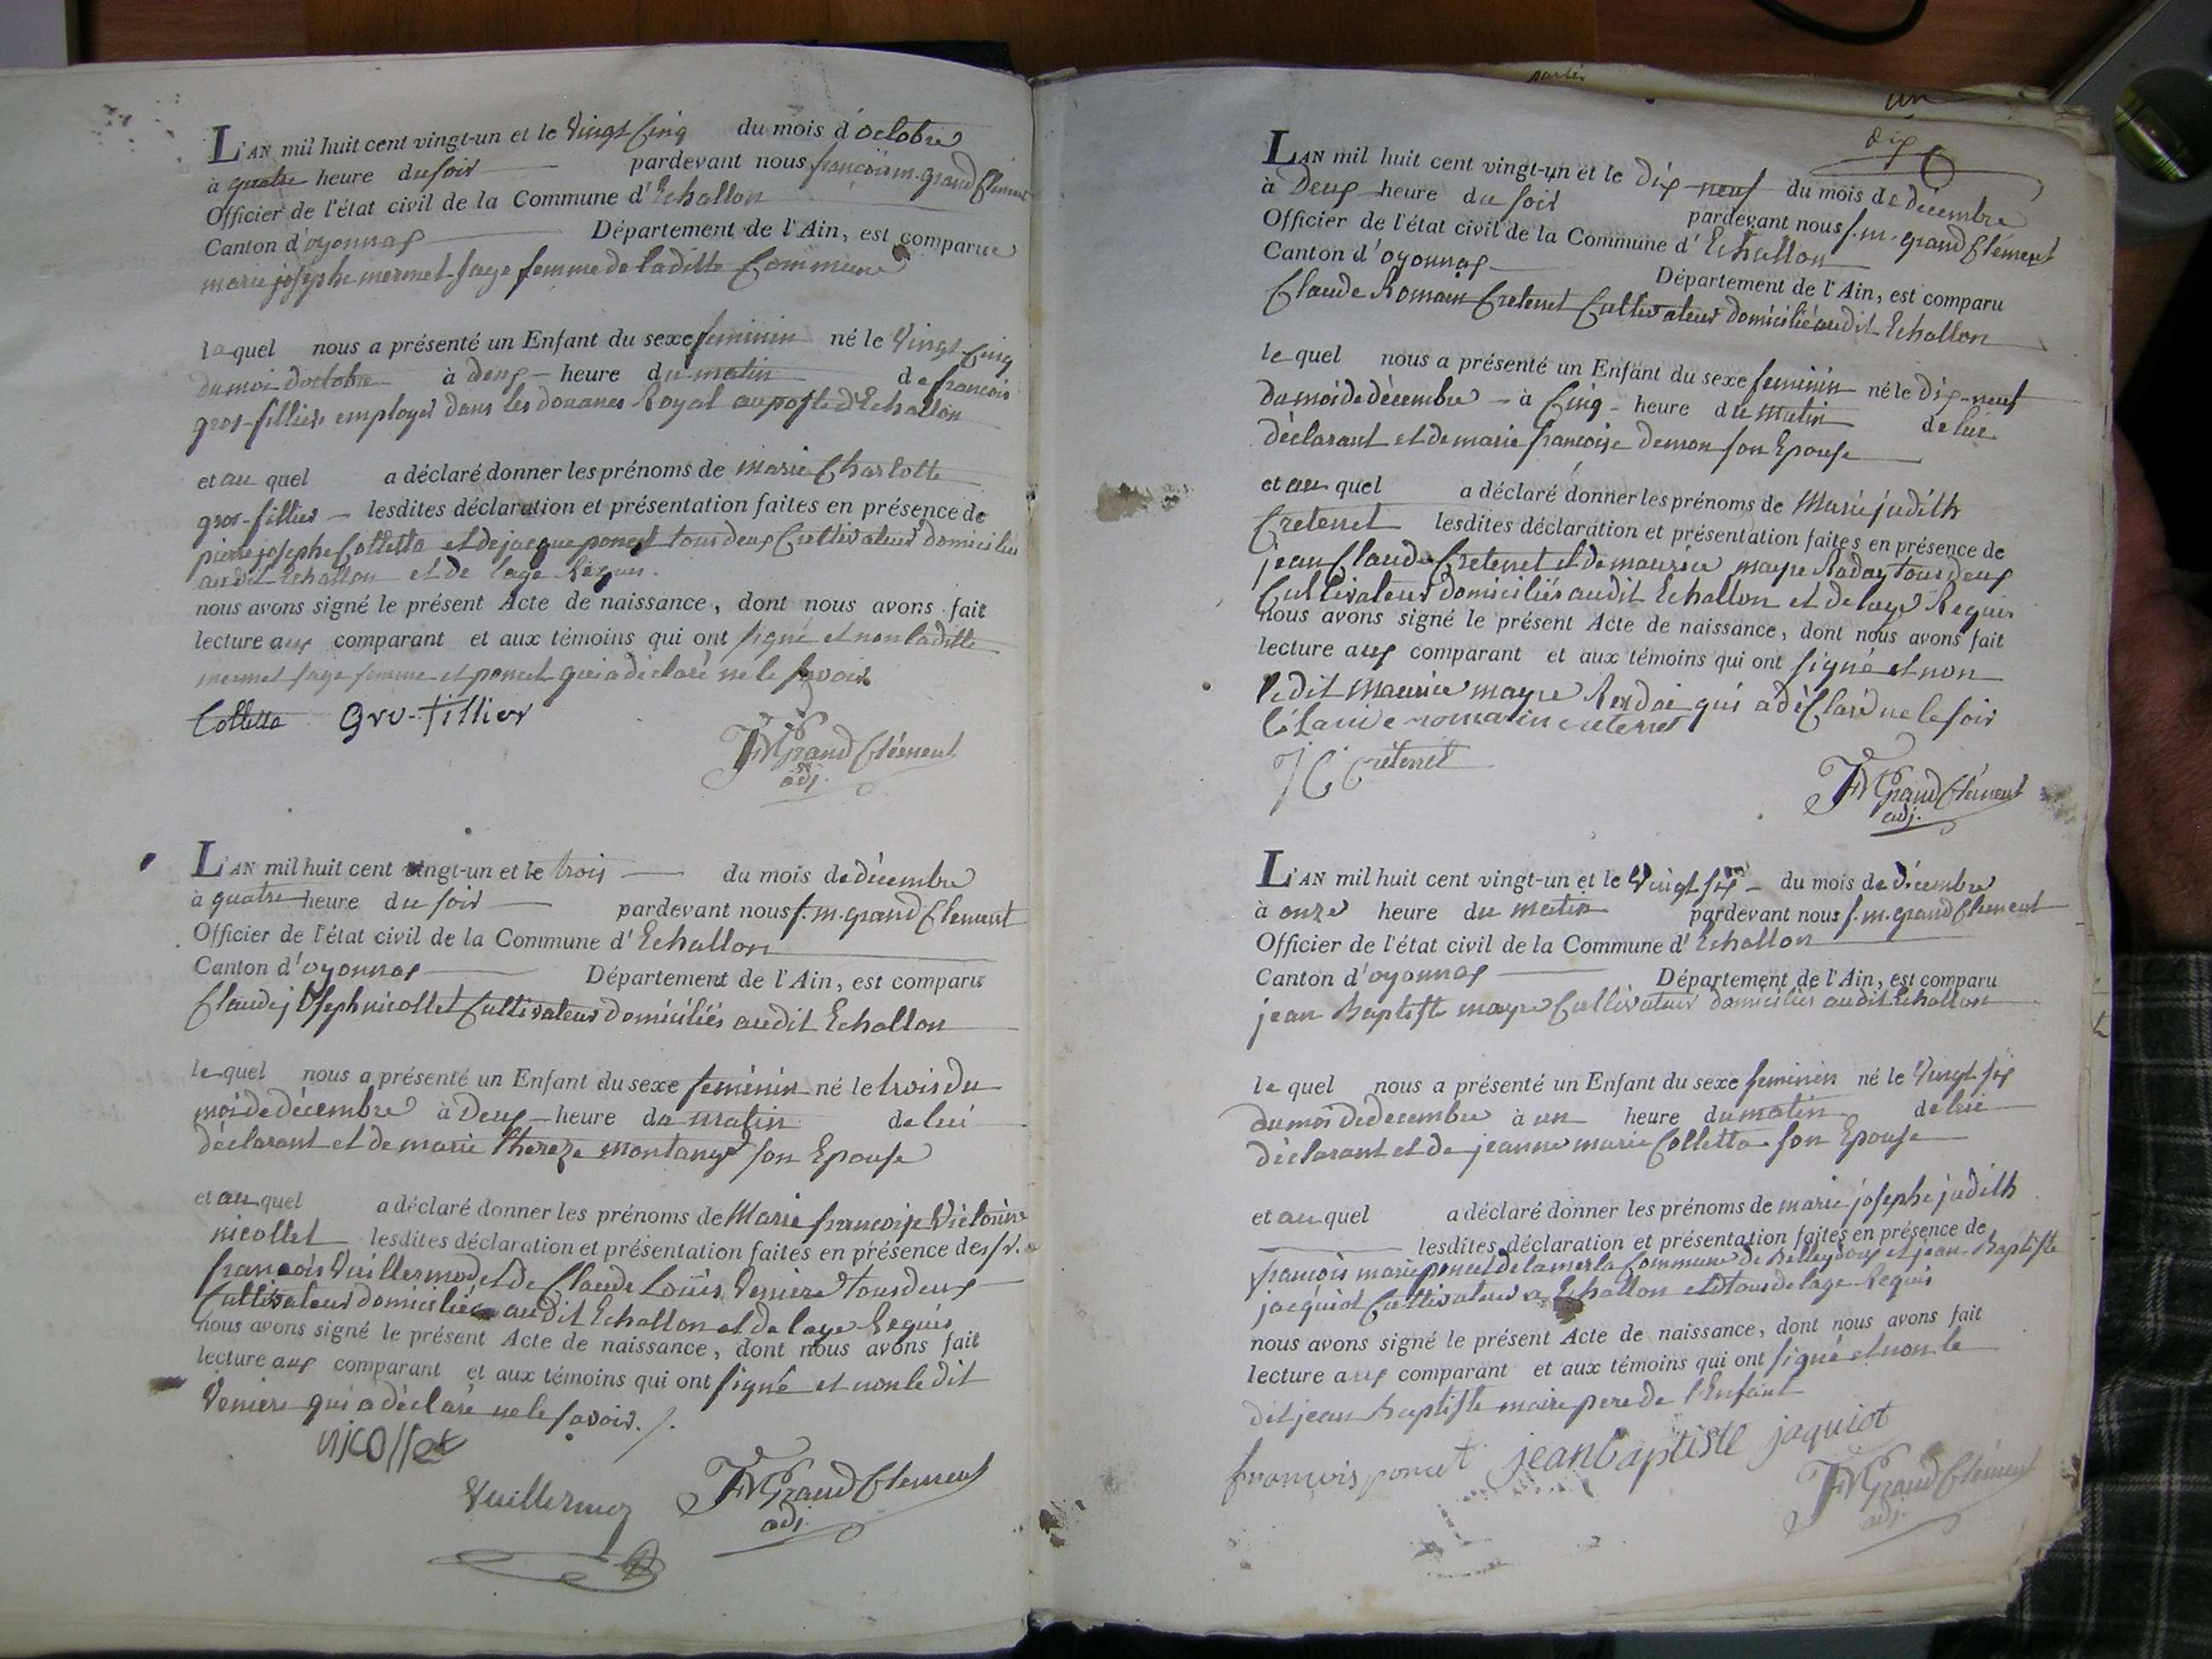 L'AN mil huit cent vingt-un et le vingt cinq du mois d'octobre
à quatre heure du soir pardevant nous françois m. grand Clement
Officier de l'état civil de la Commune d'Echallon
Canton d'oyonnax Département de l'Ain, est comparue
marie josephe mermet sage femme de laditte Commune
laquel nous a présenté un Enfant du sexe feminin né le vingt-cinq
du moi doctobre à deux heure du matin de francois
gros-fillier employer dans les douanes Royal au poste d'Echallon
et au quel a déclaré donner les prénoms de marie Charlotte
gros-fillier lesdites déclaration et présentation faites en présence de
pierre josephe Colletta et de jacque poncet tous deux Cultivateur domicilie
audit Echallon et de lage Requis.
nous avons signé le présent Acte de naissance, dont nous avons fait
lecture aux comparant et aux témoins qui ont signé et non laditte
mermet sage femme et poncet qui a déclaré ne le savoir
Colletta Gro-fillier
FMGrand Clément
adj.
L'AN mil huit cent vingt-un et le trois du mois de décembre
à quatre heure du soir pardevant nous f. m. grand Clement
Officier de l'état civil de la Commune d'Echallon
Canton d'oyonnax Département de l'Ain, est comparu
Claude joseph nicollet Cultivateur domiciliés audit Echallon
le quel nous a présenté un Enfant du sexe feminin né le trois du
mois de décembre à Deux heure du matin de lui
déclarant et de marie thereze montange son Epouse
et au quel a déclaré donner les prénoms de Marie francoise Victoire
nicollet lesdites déclaration et présentation faites en présence des sr.
francois Vuillermod et de Claude Louis Veniere tous deux
Cultivateur domiciliés audit Echallon et de lage Requis
nous avons signé le présent Acte de naissance, dont nous avons fait
lecture aux comparant et aux témoins qui ont signé et non le dit
Veniere qui a déclaré ne le savoir.
nicollet
Vuillermoz FMGrand Clement
adj.
un
dix
L'AN mil huit cent vingt-un et le dix-neuf du mois de décembre
à Deux heure du soir pardevant nous f. m. grand Clément
Officier de l'état civil de la Commune d'Echallon
Canton d'oyonnax Département de l'Ain, est comparu
Claude Romain Cretenet Cultivateur domicilié audit Echallon
le quel nous a présenté un Enfant du sexe feminin né le dix-neuf
du moi de décembre à Cinq heure du matin de lui
déclarant et de marie francoise demon son Epouse
et au quel a déclaré donner les prénoms de Marie judith
Cretenet lesdites déclaration et présentation faites en présence de
jean Claude Cretenet et de maurice mayre tous deux
Cultivateur domiciliés audit Echallon et de lage Requis
nous avons signé le présent Acte de naissance, dont nous avons fait
lecture aux comparant et aux témoins qui ont signé et non
ledit Maurice mayre qui a déClaré ne le soir
Claude romain cretenet
JC Cretenet
FMGrand Clément
adj.
L'AN mil huit cent vingt-un et le Vingt six du mois de décembre
à onze heure du matin pardevant nous f. m. grand Clement
Officier de l'état civil de la Commune d'Echallon
Canton d'oyonnax Département de l'Ain, est comparu
jean Baptiste mayre Cultivateur domicilier audit Echallon
le quel nous a présenté un Enfant du sexe feminin né le Vingt six
du moi de decembre à un heure du matin de lui
déclarant et de jeanne marie Colletta son Epouse
et au quel a déclaré donner les prénoms de marie josephe judith
lesdites déclaration et présentation faites en présence de
francois marie poncet de la Commune de Belleydoux et jean Baptiste
jacquiot Cultivateur a Echallon et tous de lage Requis
nous avons signé le présent Acte de naissance, dont nous avons fait
lecture aux comparant et aux témoins qui ont signé et non le
dit jean Baptiste maire pere de l'Enfant
françois poncet jean baptiste jaquiot
FMGrand Clément
adj.